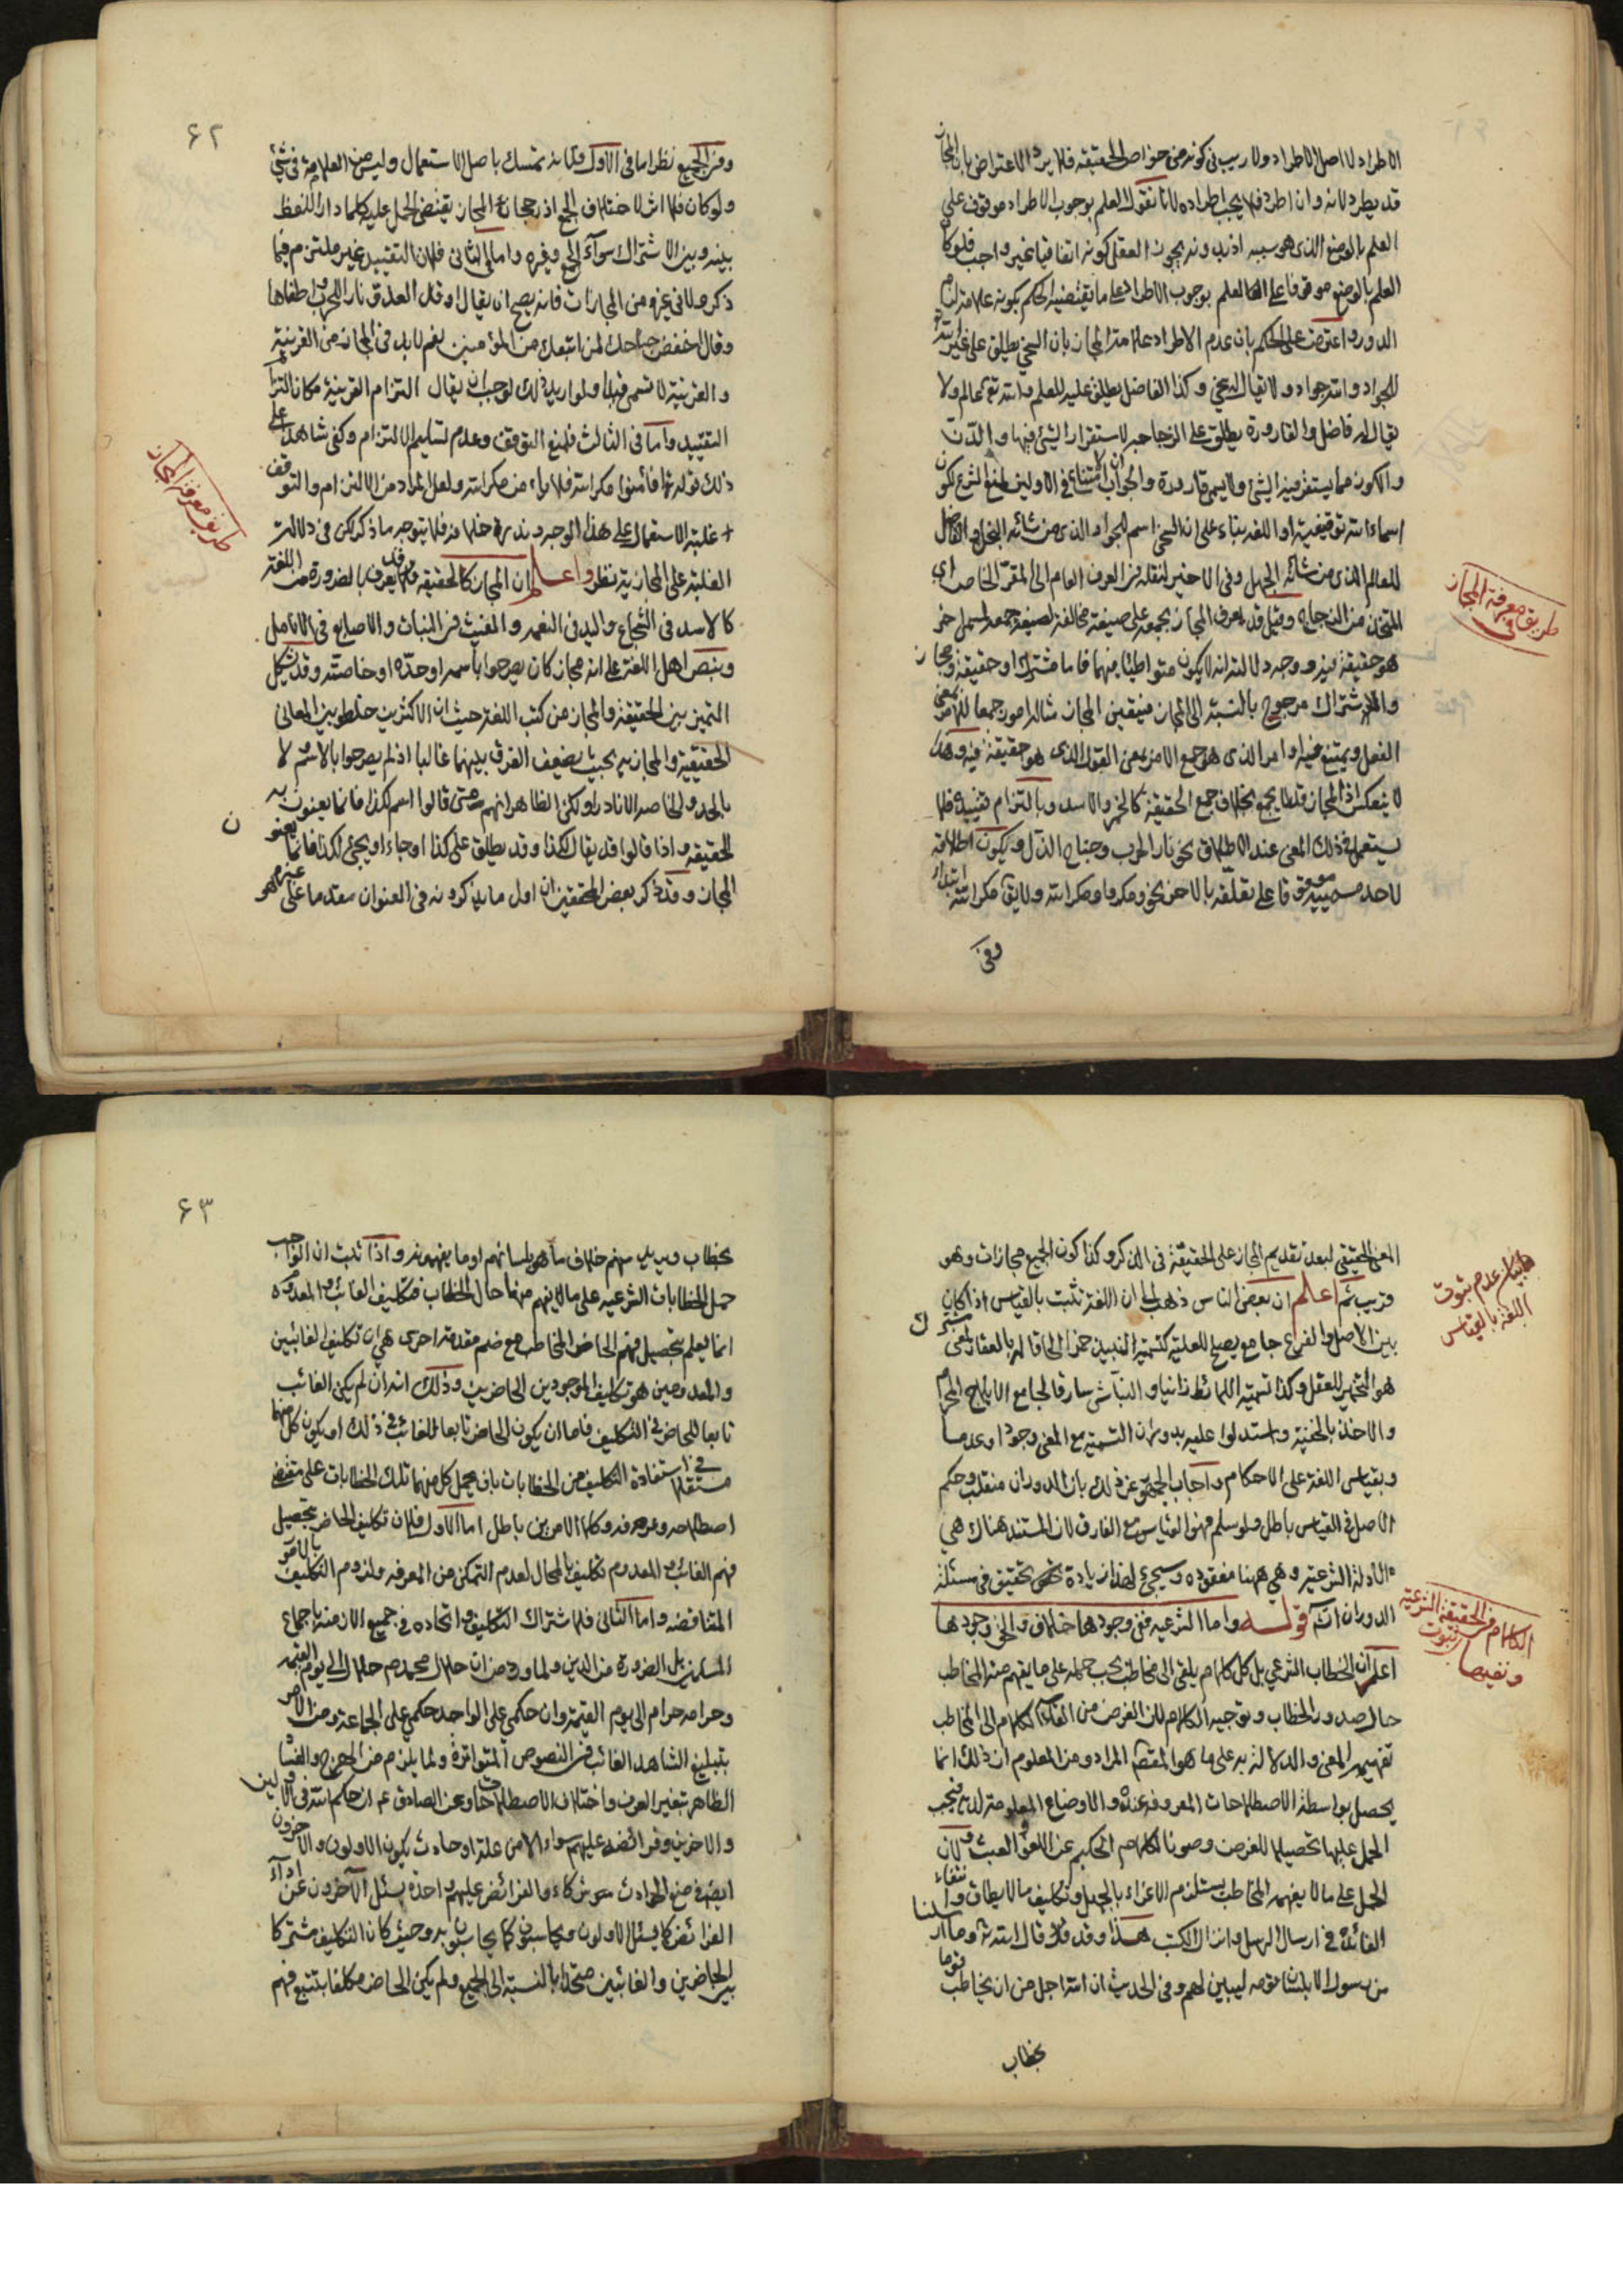 الاطراد لا اصل الاطراد ولا ريب فى كونه من خواص الحقيقة فلا يرد الاعتراض بان المجاز
قد يطرد لانه وان اطرد فلا يجب اطراده لانا نقول العلم بوجوب الاطراد موقوف على
العلم بالوضع الذى هو سببه اذ بدونه يجوز العقل كونه اتفاقيا غير واجب فلو كان
العلم بالوضع موقوفا على العلم بوجوب الاطراد على ما يقتضيه الحكم بكونه علامة لزم
الدور واعترض على الحكم بان عدم الاطراد علامة المجاز بان السخى يطلق على غير الله
للجواد والله جواد ولا يقال له سخى وكذا الفاضل يطلق عليه للعلم والله تع عالم ولا
يقال له فاضل والقارورة يطلق على الزجاجة لاستقرار الشئ فيها والدن
والكوز مما يستقر فيه الشئ ولا يسمى قارورة والجواب ان الامتناع فى الاولين لمنع الشرع لكون
اسماء الله توقيفية او اللغة بناء على ان السخى اسم للجواد الذى من شانه البخل والفاضل
للعالم الذى من شانه الجهل وفى الاخير لنقله فى العرف العام الى المقر الخاص اى
المتخذ من الزجاج وقيل قد يعرف المجاز بجمعه على صيغة مخالفة لصيغة جمعه لمسمى اخر
هو حقيقة فيه ووجه دلالته انه لا يكون متواطيا فيهما فاما مشترك او حقيقة ومجاز
والاشتراك مرجوح بالنسبة الى المجاز فيتعين المجاز مثاله امور جمعا للامر بمعنى
الفعل ويمتنع فيه اوامر الذى هو جمع الامر بمعنى القول الذى هو حقيقة فيه وهذا
لا ينعكس اذ المجاز قد لا يجمع بخلاف جمع الحقيقة كالحمر والاسد وبالتزام تقييده فلا
يستعمل فى ذلك المعنى عند الاطلاق نحو نار الحرب وجناح الذل وبكون اطلاقه
لاحد مسمييه موقوفا على تعلقه بالاخر نحو ومكروا ومكر الله ولا يق مكر الله ابتداء
وفى
طريق معرفة المجاز
۶۲
وفى الجميع نظر اما فى الاول فلانه تمسك باصل الاستعمال وليس من العلامة فى شئ
ولو كان فلا اثر لاختلاف الجمع اذ رجحان المجاز يقتضى الحمل عليه كلما دار اللفظ
بينه وبين الاشتراك سواء الجمع وغيره واما الثانى فلان التقييد غير ملتزم فيما
ذكره ولا فى غيره من المجازات فانه يصح ان يقال اوقد العدو نار الحرب واطفاها
وقال اخفض جناحك لمن اتبعك من المؤمنين نعم لا بد فى المجاز من القرينة
والقرينة لا تسمى قيدا ولو اريد ذلك لوجب ان يقال التزام القرينة مكان التزام
التقييد واما فى الثالث فلمنع التوقف وعدم تسليم الالتزام وكفى شاهدا على
ذلك قوله تعا افأمنوا مكر الله فلا يأمن مكر الله ولعل المراد من الالتزام والتوقف
غلبة الاستعمال على هذا الوجه وندرة خلافه فلا يتوجه ما ذكر لكن فى دلالة
الغلبة على المجازية نظر واعلم ان المجاز كالحقيقة قد يعرف بالضرورة من اللغة
كالاسد فى الشجاع واليد فى النعمة والغيث فى النبات والاصابع فى الانامل
وبنص اهل اللغة على انه مجاز كان يصرحوا باسمه او حده او خاصته وقد يشكل
التميز بين الحقيقة والمجاز من كتب اللغة حيث ان الاكثرين خلطو بين المعانى
الحقيقية والمجازية بحيث يضعف الفرق بينهما غالبا اذ لم يصرحوا بالاسم لا
بالحد ولا الخاصة الا نادرا ولكن الظاهر انهم متى قالوا اسم لكذا فانما يعنون به
الحقيقة واذا قالوا قد يقال لكذا وقد يطلق على كذا او جاء او يجئ لكذا فانما يعنون
المجاز وقد ذكر بعض المحققين ان اول ما يذكرونه فى العنوان مقدما على غيره هو
طريق معرفة المجاز
المعنى الحقيقى لبعد تقديم المجاز على الحقيقة فى الذكر وكذا كون الجميع مجازات وهو
قريب ثم اعلم ان بعض الناس ذهب الى ان اللغة تثبت بالقياس اذا كان
بين الاصل والفرع جامع يصلح للعلية كتسمية النبيذ خمرا الحاقا له بالعقار لمعنى مشترك
هو التخمير للعقل وكذا تسمية اللائط زانيا والنباش سارقا لجامع الايلاج المحرم
والاخذ بالخفية واستدلوا عليه بدوران التسمية مع المعنى وجودا وعدما
وبقياس اللغة على الاحكام واجاب الجمهور عن ذلك بان الدوران منقلب وحكم
الاصل فى القياس باطل ولو سلم فهو القياس مع الفارق لان المستند هناك هى
الادلة الشرعية وهى ههنا مفقودة وسيجئ لهذا زيادة تحقيق فى مسئلة
الدوران انشاء قوله واما الشرعية ففى وجودها خلاف والحق وجودها
اعلم ان الخطاب الشرعي بل كل كلام يلقى الى مخاطب يجب حمله على ما يفهم منه المخاطب
حال صدور الخطاب وتوجيه الكلام لان الغرض من القاء الكلام الى المخاطب
تفهيمه المعنى والدلالة به على ما هو المقصد المراد ومن المعلوم ان ذلك انما
يحصل بواسطة الاصطلاحات المعروفة عنده والاوضاع المعلومة لديه فيجب
الحمل عليها تحصيلا للغرض وصونا لكلام الحكيم عن اللغو والعبث ولان
الحمل على ما لا يفهمه المخاطب يستلزم الاغراء بالجهل وتكليف ما لا يطاق وانتفاء
الفائدة فى ارسال الرسل وانزال الكتب هذا وقد قال الله تع وما ارسلنا
من رسول الا بلسان قومه ليبين لهم وفى الحديث ان الله اجل من ان يخاطب قوما
بخطاب
فى بيان عدم ثبوت
اللغة بالقياس
الكلام فى الحقيقة الشرعية
ثبوت
ونفيها
۶۳
بخطاب ويريد منهم خلاف ما هو بلسانهم او ما يفهمونه واذا ثبت ان الواجب
حمل الخطابات الشرعيه على ما يفهم منها حال الخطاب فتكليف الغائب والمعدوم
انما يعلم بتحصيل فهم الحاضر المخاطب مع ضم مقدمة اخرى هى ان تكليف الغائبين
والمعدومين هو تكليف الموجودين الحاضرين وذلك انه ان لم يكن الغائب
تابعا للحاضر فى التكليف فاما ان يكون الحاضر تابعا للغائب فى ذلك او يكون كل منهما
مستقلا فى استفادة التكليف من الخطابات بان يحمل كل منهما تلك الخطابات على مقتضى
اصطلاحه وعرفه وكلا الامرين باطل اما الاول فلان تكليف الحاضر بتحصيل
فهم الغائب والمعدوم تكليف بالمحال لعدم التمكن من المعرفة ولزوم التكليف بالامور
المتناقضة واما الثانى فلاشتراك التكليف واتحاده فى جميع الازمنة باجماع
المسلمين بل الضرورة من الدين ولما ورد من ان حلال محمد ص حلال الى يوم القيمه
وحرامه حرام الى يوم القيمة وان حكمي على الواحد حكمي على الجماعة ومن الامر
بتبليغ الشاهد الغائب فى النصوص المتواترة ولما يلزم من الهرج والفساد
الظاهر بتغير العرف واختلاف الاصطلاحات وعن الصادق ع ان حكم الله فى الاولين
والاخرين وفرائضه عليهم سواء الا من علة او حادث يكون الاولون والاخرون
ايضا فى منع الحوادث شركاء والفرائض عليهم واحدة يسئل الاخرون عن اداء
الفرائض كما يسئل الاولون ويحاسبون كما يحاسبون به وحيث كان التكليف مشتركا
بين الحاضرين والغائبين متحدا بالنسبة الى الجميع ولم يكن الحاضر مكلفا بتتبع فهم